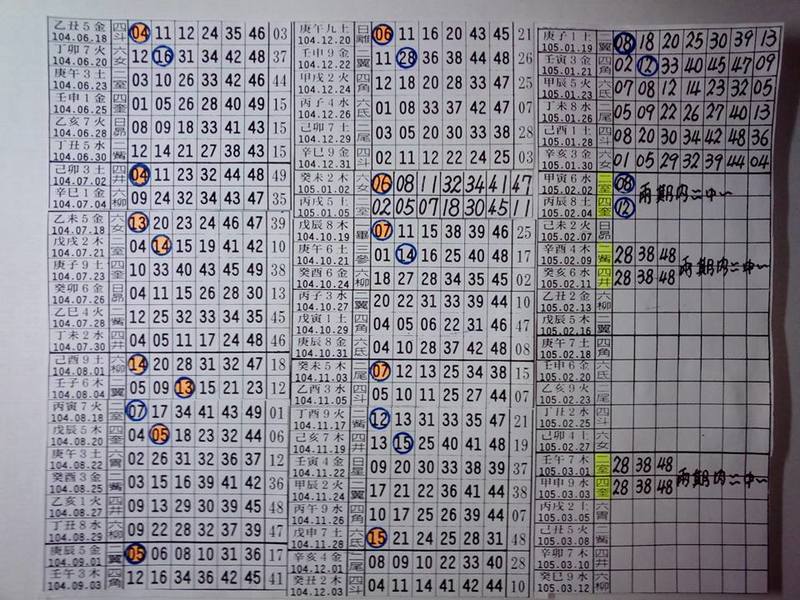 乙丑5金 四斗 04 11 12 24 35 46 03
104.06.18
丁卯7火 六女 12 16 31 34 42 48 37
104.06.20
庚午3土 二室 03 10 26 33 42 46 44
104.06.23
壬申1金 四奎 01 05 26 28 40 49 15
104.06.25
乙亥7火 日昴 08 09 18 33 41 43 15
104.06.28
丁丑5水 二觜 12 14 21 27 38 43 15
104.06.30
己卯3土 四井 04 11 23 32 44 48 49
104.07.02
辛巳1金 六柳 09 24 32 34 43 47 35
104.07.04
乙未5金 六女 13 20 23 24 46 47 39
104.07.18
戊戌2木 二室 04 14 15 19 41 42 10
104.07.21
庚子9土 四奎 10 33 40 43 45 49 38
104.07.23
癸卯6金 日昴 04 11 15 26 28 30 13
104.07.26
乙巳4火 二觜 12 25 32 33 34 35 45
104.07.28
丁未2水 四井 04 05 11 17 24 48 46
104.07.30
己酉9土 六柳 14 20 28 31 32 47 18
104.08.01
壬子6木 二翼 05 09 13 15 21 23 12
104.08.04
丙寅7火 二室 07 17 34 41 43 49 01
104.08.18
戊辰5木 四奎 04 05 18 23 32 44 06
104.08.20
庚午3土 六胃 02 26 31 32 36 37 12
104.08.22
癸酉3金 二觜 03 15 16 39 41 42 36
104.08.25
乙亥1火 四井 09 13 29 30 39 45 48
104.08.27
丁丑8水 六柳 09 22 28 32 37 39 47
104.08.29
庚辰5金 二翼 05 06 08 10 31 36 17
104.09.01
壬午3木 四角 12 16 34 36 42 45 41
104.09.03
庚午九上 日 06 11 16 20 43 45 21
104.12.20
壬申9金 二翼 11 28 36 38 44 48 26
104.12.22
甲戌2火 四角 12 18 20 28 33 47 25
104.12.24
丙子4水 六氐 01 08 33 37 42 47 07
104.12.26
己卯7土 二尾 03 05 20 30 33 38 28
104.12.29
辛巳9金 四斗 02 11 12 22 24 25 03
104.12.31
癸未2木 六女 06 08 11 32 34 41 47
105.01.02
丙戌5土 二室 02 05 07 18 30 45 11
105.01.05
戊辰8木 畢 07 11 15 38 39 46 25
104.10.19
庚午6土 三參 01 14 16 25 40 48 17
104.10.21
癸酉6金 六柳 18 27 28 34 35 45 02
104.10.24
丙子3水 二翼 20 22 31 33 39 44 10
104.10.27
戊寅1土 四角 04 05 06 22 31 46 47
104.10.29
庚辰8金 六氐 04 10 28 37 42 48 08
104.10.31
癸未5木 二尾 07 12 13 25 34 38 15
104.11.03
乙酉3水 四斗 05 10 11 25 27 44 07
104.11.05
丁酉9火 二觜 12 13 31 33 35 47 21
104.11.17
己亥7木 四井 13 15 25 40 41 48 19
104.11.19
壬寅4金 日星 09 20 30 33 38 39 37
104.11.22
甲辰2火 二翼 17 21 22 36 41 44 38
104.11.24
丙午9水 四角 10 17 25 26 39 44 07
104.11.26
戊申7土 六氐 15 21 24 25 28 31 48
104.11.28
辛亥4金 二尾 08 09 10 22 33 40 28
104.12.01
癸丑2木 四斗 04 11 14 41 42 44 10
104.12.03
庚子1土 二翼 08 18 20 25 30 39 13
105.01.19
壬寅3金 四角 02 12 33 40 45 47 09
105.01.21
甲辰5火 六氐 07 08 12 14 23 32 05
105.01.23
丁未8水 二尾 05 09 22 26 27 40 13
105.01.26
己酉1土 四斗 08 20 30 34 42 48 36
105.01.28
辛亥3金 六女 01 05 29 32 39 44 04
105.01.30
甲寅6水 二室 08 兩期內二中一
105.02.02
丙辰8土 四奎 12
105.02.04
己未2火 日昴
105.02.07
辛酉4木 二觜 28 38 48 兩期內二中一
105.02.09
癸亥6水 四井 28 38 48
105.02.11
乙丑2金 六柳
105.02.13
戊辰5木 二翼
105.02.16
庚午7土 四角
105.02.18
壬申6金 六氐
105.02.20
乙亥9火 二尾
105.02.23
丁丑2水 四斗
105.02.25
己卯4土 六女
105.02.27
壬午7木 二室 28 38 48 兩期內二中一
105.03.01
甲申9水 四奎 28 38 48
105.03.03
丙戌2土 六胃
105.03.05
己丑5火 二觜
105.03.08
辛卯7木 四井
105.03.10
癸巳9水 六柳
105.03.12